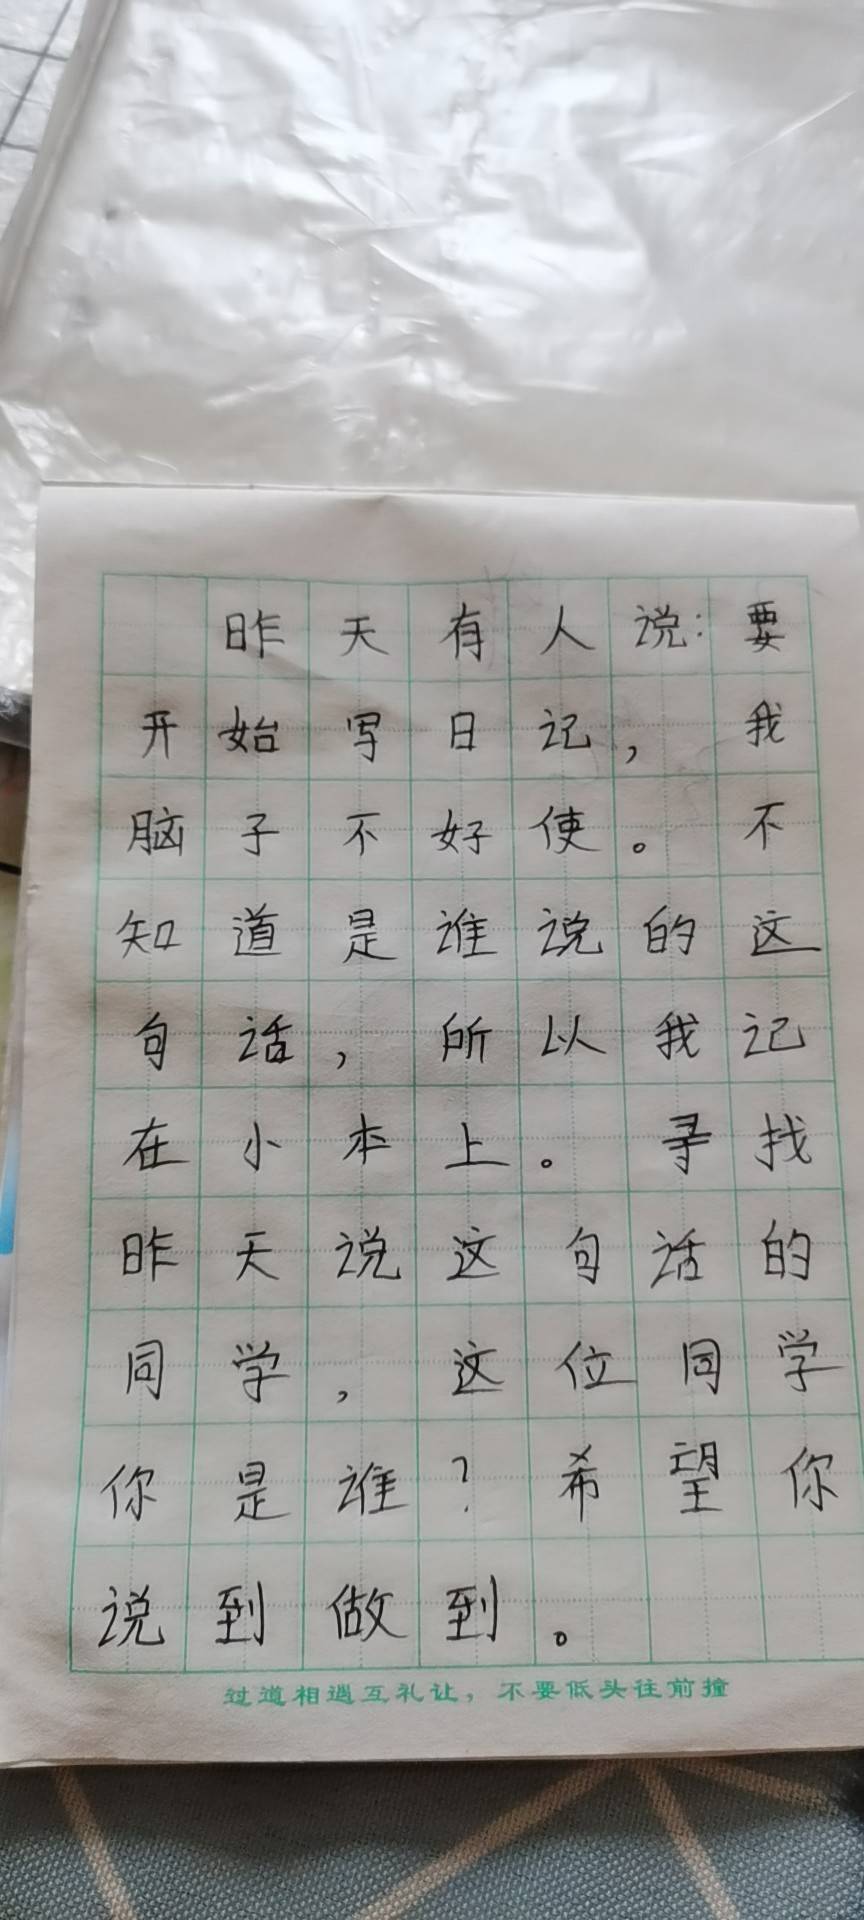 昨天有人说:要
开始写日记，我
脑子不好使。不
知道是谁说的这
句话，所以我记
在小本上。寻找
昨天说这句话的
同学，这位同学
你是谁？希望你
说到做到。
过道相遇互礼让，不要低头往前撞